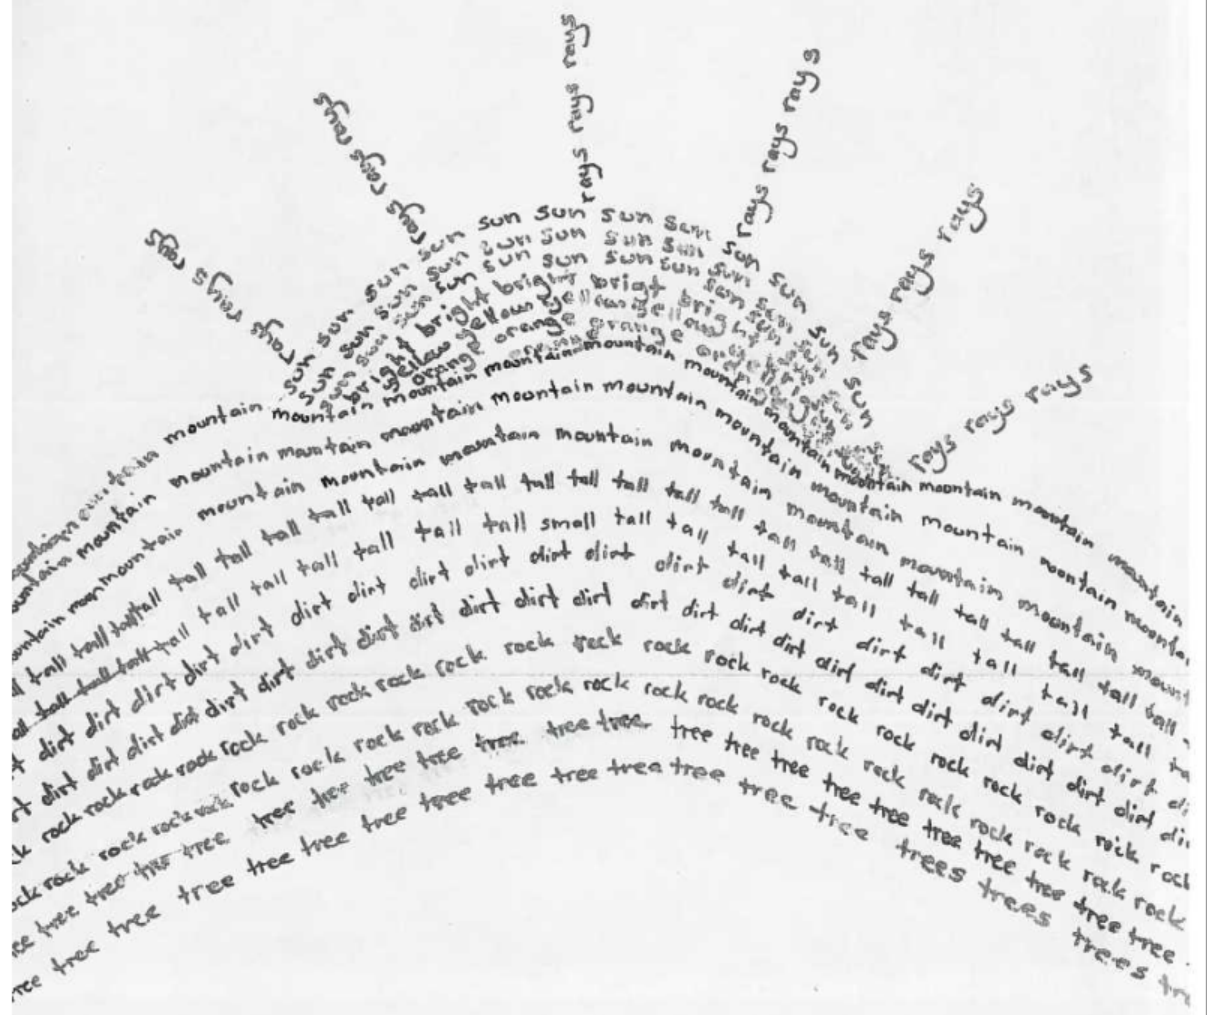 rays rays rays
rays rays rays
rays rays rays
rays rays rays
rays rays rays
rays rays rays
sun sun sun sun sun sun sun sun sun sun sun sun sun
sun sun sun sun sun sun sun sun sun sun sun
sun sun sun sun sun sun sun sun sun sun
bright bright bright bright bright bright
yellow yellow yellow yellow yellow
orange orange orange orange
mountain mountain mountain mountain mountain mountain mountain mountain mountain mountain mountain mountain
mountain mountain mountain mountain mountain mountain mountain mountain mountain mountain mountain
mountain mountain mountain mountain mountain mountain mountain mountain mountain mountain
tall tall tall tall tall tall tall tall tall tall tall tall tall tall tall tall tall tall tall tall tall tall
tall tall tall tall tall tall tall tall tall tall small tall tall tall tall tall tall tall tall tall
dirt dirt dirt dirt dirt dirt dirt dirt dirt dirt dirt dirt dirt dirt dirt dirt dirt dirt
dirt dirt dirt dirt dirt dirt dirt dirt dirt dirt dirt dirt dirt dirt dirt dirt dirt dirt dirt dirt
rock rock rock rock rock rock rock rock rock rock rock rock rock rock rock rock rock rock rock
rock rock rock rock rock rock rock rock rock rock rock rock rock rock rock rock rock rock rock
tree tree tree tree tree tree tree tree tree tree tree tree tree tree tree tree tree tree tree
tree tree tree tree tree tree tree tree tree tree tree tree tree tree trees trees trees